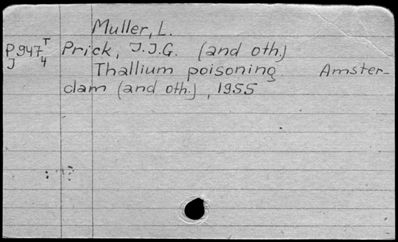 Muller, L.
P947 T Prick, J.J.G. (and oth)
J 4 Thallium poisoning Amster-
dam (and oth.), 1955